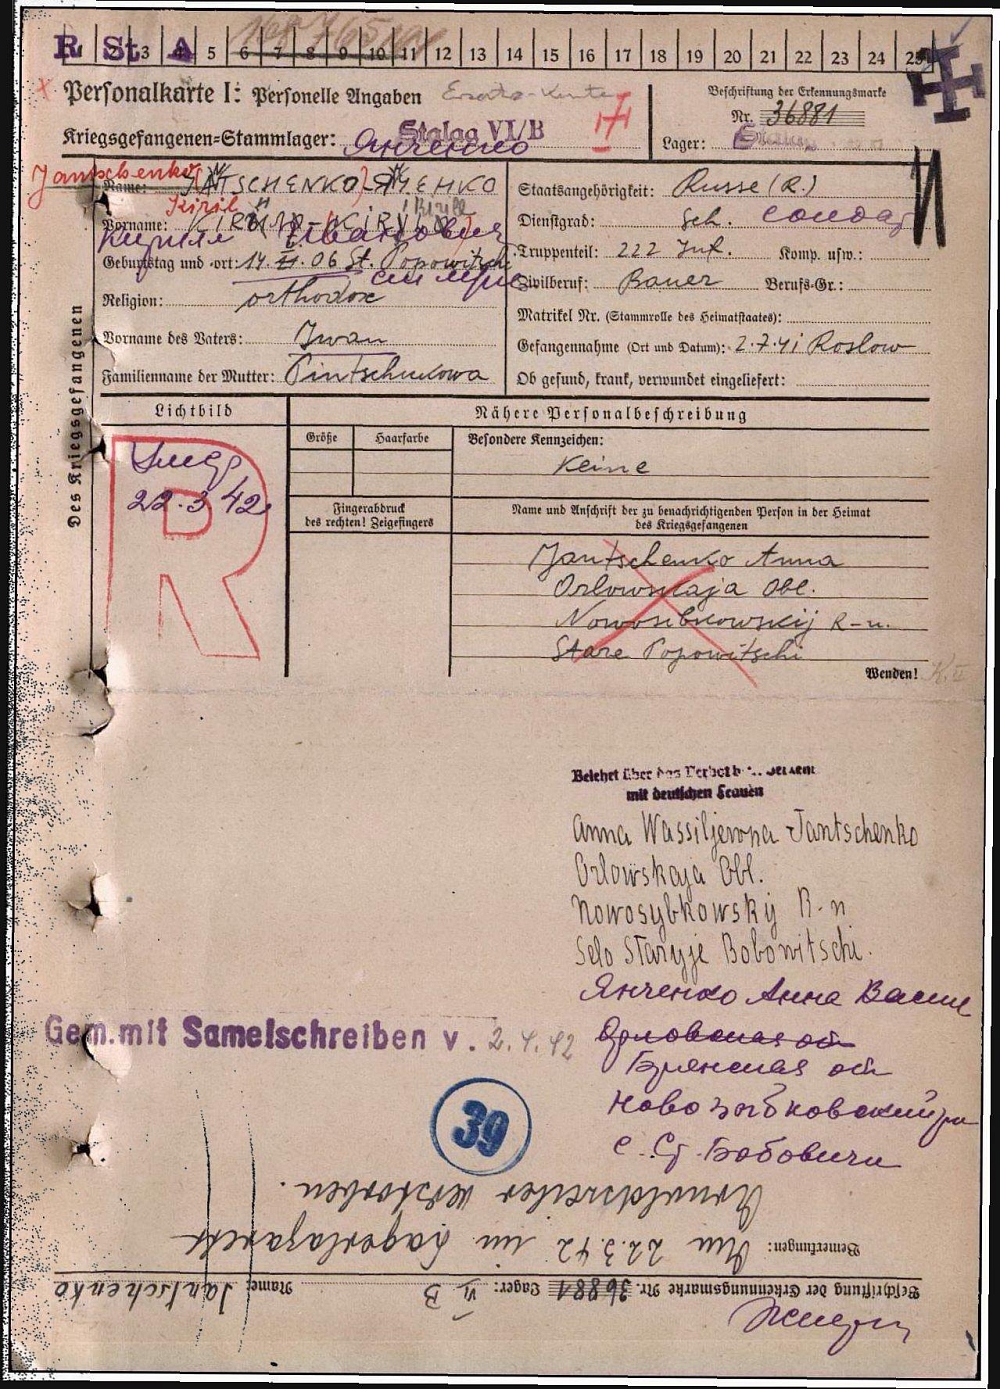 R St A 5 6 7 8 9 10 11 12 13 14 15 16 17 18 19 20 21 22 23 24 25
Personalkarte I: Personelle Angaben
Beschriftung der Erkennungsmarke
Nr. 36881
Kriegsgefangenen-Stammlager: Stalag VI/B
Lager:
Янченко
Jantschenko
Name: JATSCHENKO
Kiril
Vorname:
Кирилл Иванович
Geburtstag und -ort: 14. 06 St. Popowitschi
Religion: orthodox
Vorname des Vaters: Iwan
Familienname der Mutter: Pintschukowa
Staatsangehörigkeit: Russe (R.)
Dienstgrad: Sch. солдат
Truppenteil: 222 Inf. Komp. usw.:
Zivilberuf: Bauer Berufs-Gr.:
Matrikel Nr. (Stammrolle des Heimatstaates):
Gefangennahme (Ort und Datum): 2.7.41 Roslow
Ob gesund, krank, verwundet eingeliefert:
Des Kriegsgefangenen
Lichtbild
Nähere Personalbeschreibung
Größe
Haarfarbe
Besondere Kennzeichen:
Keine
R
22.3.42
Fingerabdruck
des rechten! Zeigefingers
Name und Anschrift der zu benachrichtigenden Person in der Heimat
des Kriegsgefangenen
Jantschenko Anna
Orlowskaja Obl.
Nowosibkowskij R-n.
Stare Popowitschi
Wenden!
Belehrt über das Verbot
mit deutschen Frauen
Anna Wassiljewna Jantschenko
Orlowskaja Obl.
Nowosybkowskij R-n
Selo Staryje Bobowitschi.
Янченко Анна Васил
Орловская об
Брянская об
Новозыбковский р
с. Ст. Бобовичи
Gem. mit Samelschreiben v. 2.4.42
39
Beschriftung der Erkennungsmarke Nr. 36881 Lager: VI B Name: Jantschenko
Bemerkungen: Am 22.3.42 im Lagerlazarett
Arnoldsweiler verstorben.